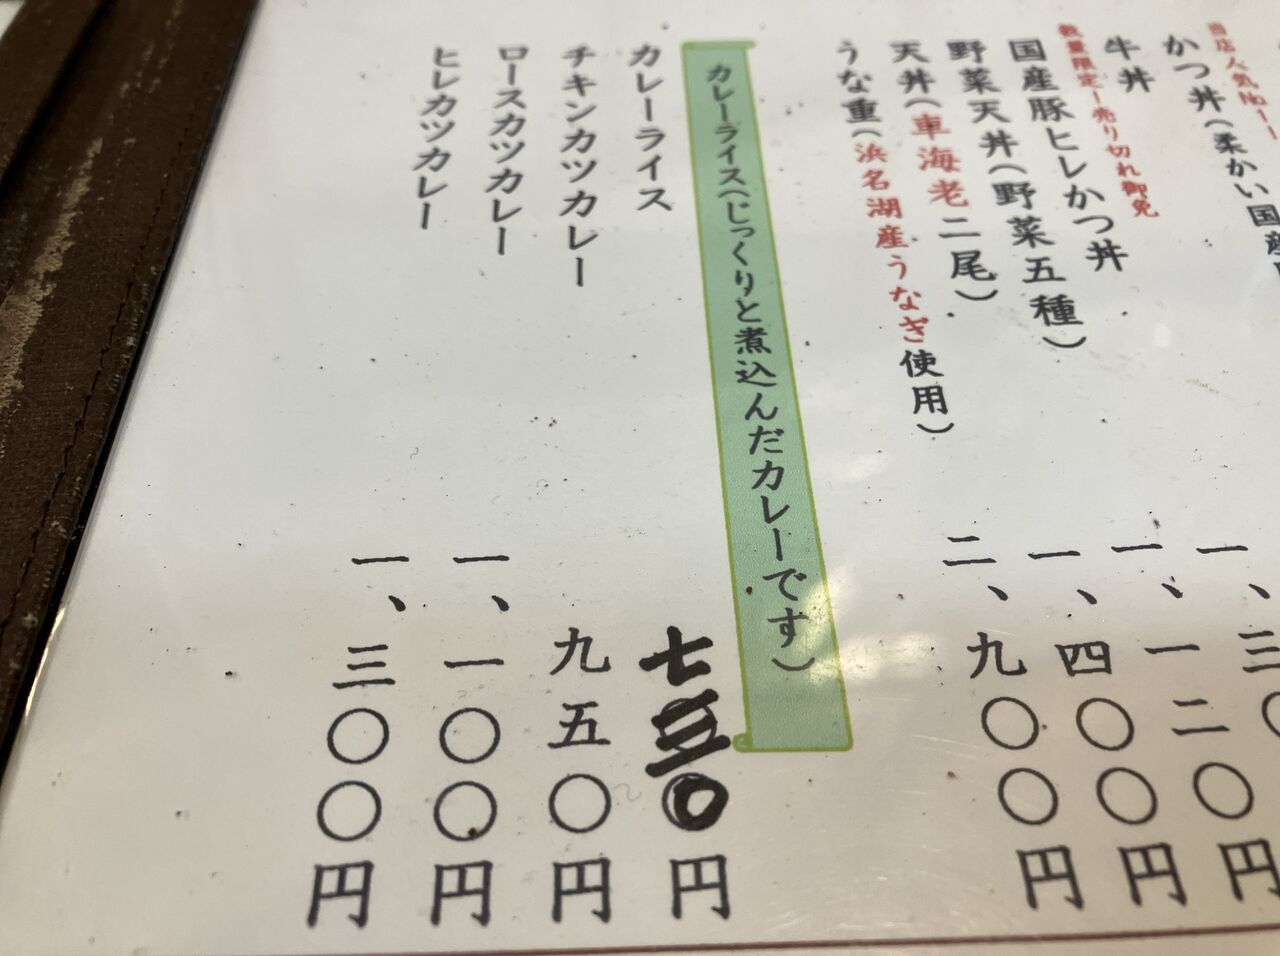 当店人気No1！
かつ丼（柔かい国産
数量限定！売り切れ御免
牛丼
国産豚ヒレかつ丼 一、三〇円
野菜天丼（野菜五種） 一、一二〇円
天丼（車海老二尾） 一、四〇〇円
うな重（浜名湖産うなぎ使用） 二、九〇〇円
カレーライス（じっくりと煮込んだカレーです）
カレーライス 七三〇円
チキンカツカレー 九五〇円
ロースカツカレー 一、一〇〇円
ヒレカツカレー 一、三〇〇円